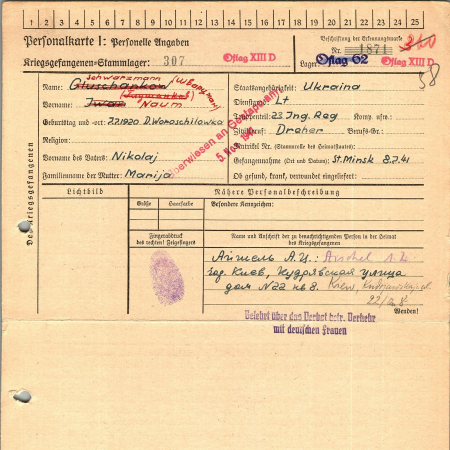 1 2 3 4 5 6 7 8 9 10 11 12 13 14 15 16 17 18 19 20 21 22 23 24 25
Personalkarte I: Personelle Angaben
Kriegsgefangenen-Stammlager: 307 Oflag XIII D
Beschriftung der Erkennungsmarke
Nr. 1871 360
Lager: Oflag 62 Oflag XIII D
58
Des Kriegsgefangenen
schwarzmann (Шварцман)
Name: Gluschankow
Vorname: Iwan Naum
Geburtstag und -ort: 7.7.1920 D. Woroschilowka
Religion:
Vorname des Vaters: Nikolaj
Familienname der Mutter: Marija
überwiesen an Gestapo am:
Staatsangehörigkeit: Ukraina
Dienstgrad: Lt
Truppenteil: 23 Ing. Reg Komp. usw.:
Zivilberuf: Dreher Berufs-Gr.:
Matrikel Nr. (Stammrolle des Heimatstaates):
Gefangennahme (Ort und Datum): St. Minsk 8.7.41
Ob gesund, krank, verwundet eingeliefert:
Lichtbild
Nähere Personalbeschreibung
Größe Haarfarbe Besondere Kennzeichen:
Fingerabdruck
des rechten! Zeigefingers
Name und Anschrift der zu benachrichtigenden Person in der Heimat
des Kriegsgefangenen
Айшель А.И.:
гор. Киев, Кудрявская улица
дом N22 кв 8. Kiew,
22/ 8
Wenden!
Belehrt über das Verbot betr. Verkehr
mit deutschen Frauen